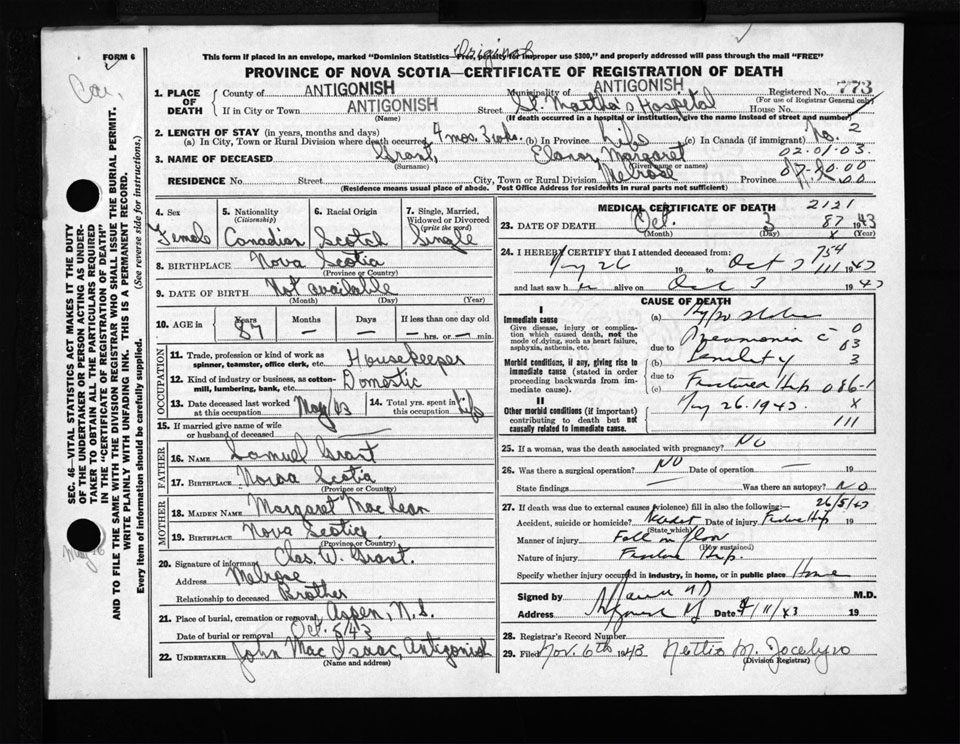 Original
FORM 6
This form if placed in an envelope, marked "Dominion Statistics—Free, penalty for improper use $300," and properly addressed will pass through the mail "FREE"
PROVINCE OF NOVA SCOTIA—CERTIFICATE OF REGISTRATION OF DEATH
1. PLACE OF DEATH
County of ANTIGONISH Municipality of ANTIGONISH Registered No. 773
(For use of Registrar General only)
If in City or Town ANTIGONISH Street St. Martha's Hospital House No.
(Name) (If death occurred in a hospital or institution, give its name instead of street and number)
2. LENGTH OF STAY (in years, months and days)
(a) In City, Town or Rural Division where death occurred 4 mos. 3 wks. (b) In Province Life (c) In Canada (if immigrant) no. 2
3. NAME OF DECEASED Grant, Elanor Margaret 02.01.03.
(Surname) (Given name or names)
RESIDENCE No. Street City, Town or Rural Division Melrose Province N.S.
(Residence means usual place of abode. Post Office Address for residents in rural parts not sufficient)
4. Sex Female
5. Nationality (Citizenship) Canadian
6. Racial Origin Scotch
7. Single, Married, Widowed or Divorced (write the word) Single
8. BIRTHPLACE Nova Scotia
(Province or Country)
9. DATE OF BIRTH Not available
(Month) (Day) (Year)
10. AGE in Years Months Days If less than one day old
87 — — — hrs. or — min.
OCCUPATION
11. Trade, profession or kind of work as spinner, teamster, office clerk, etc. Housekeeper
12. Kind of industry or business, as cotton-mill, lumbering, bank, etc. Domestic
13. Date deceased last worked at this occupation May/43
14. Total yrs. spent in this occupation Life
15. If married give name of wife or husband of deceased
FATHER
16. NAME Samuel Grant
17. BIRTHPLACE Nova Scotia
(Province or Country)
MOTHER
18. MAIDEN NAME Margaret MacLean
19. BIRTHPLACE Nova Scotia
(Province or Country)
20. Signature of informant Chas. W. Grant.
Address Melrose
Relationship to deceased Brother
21. Place of burial, cremation or removal Aspen, N.S.
Date of burial or removal Oct. 5/43
22. UNDERTAKER John MacIsaac, Antigonish
(Name and address)
MEDICAL CERTIFICATE OF DEATH 2121
23. DATE OF DEATH Oct. 3 87 1943
(Month) (Day) X (Year)
24. I HEREBY CERTIFY that I attended deceased from: 754
May 26 19 to Oct 3 111 1943
and last saw h er alive on Oct 3 1943
CAUSE OF DEATH
I
Immediate cause
Give disease, injury or complication which caused death, not the mode of dying, such as heart failure, asphyxia, asthenia, etc.
Morbid conditions, if any, giving rise to immediate cause (stated in order proceeding backwards from immediate cause).
II
Other morbid conditions (if important) contributing to death but not causally related to immediate cause.
(a) Hypostatic 0
due to Pneumonia c 03
(b) Senility 3
due to
(c) Fractured Hip 086-1
May 26. 1943. X
111
25. If a woman, was the death associated with pregnancy? No
26. Was there a surgical operation? No Date of operation — 19
State findings — Was there an autopsy? No
27. If death was due to external causes (violence) fill in also the following: 26/5/43
Accident, suicide or homicide? Date of injury 19
(State which)
Manner of injury Fall on floor
(How sustained)
Nature of injury Fracture Hip.
Specify whether injury occurred in industry, in home, or in public place Home
Signed by M.D.
Address Date 11/43 19
28. Registrar's Record Number
29. Filed Nov. 6th 1943 Nettie M. Jocelyn
(Division Registrar)
SEC. 46—VITAL STATISTICS ACT MAKES IT THE DUTY OF THE UNDERTAKER OR PERSON ACTING AS UNDERTAKER TO OBTAIN ALL THE PARTICULARS REQUIRED IN THE "CERTIFICATE OF REGISTRATION OF DEATH" AND TO FILE THE SAME WITH THE DIVISION REGISTRAR WHO SHALL ISSUE THE BURIAL PERMIT.
WRITE PLAINLY WITH UNFADING INK. THIS IS A PERMANENT RECORD.
Every item of information should be carefully supplied. (See reverse side for instructions.)